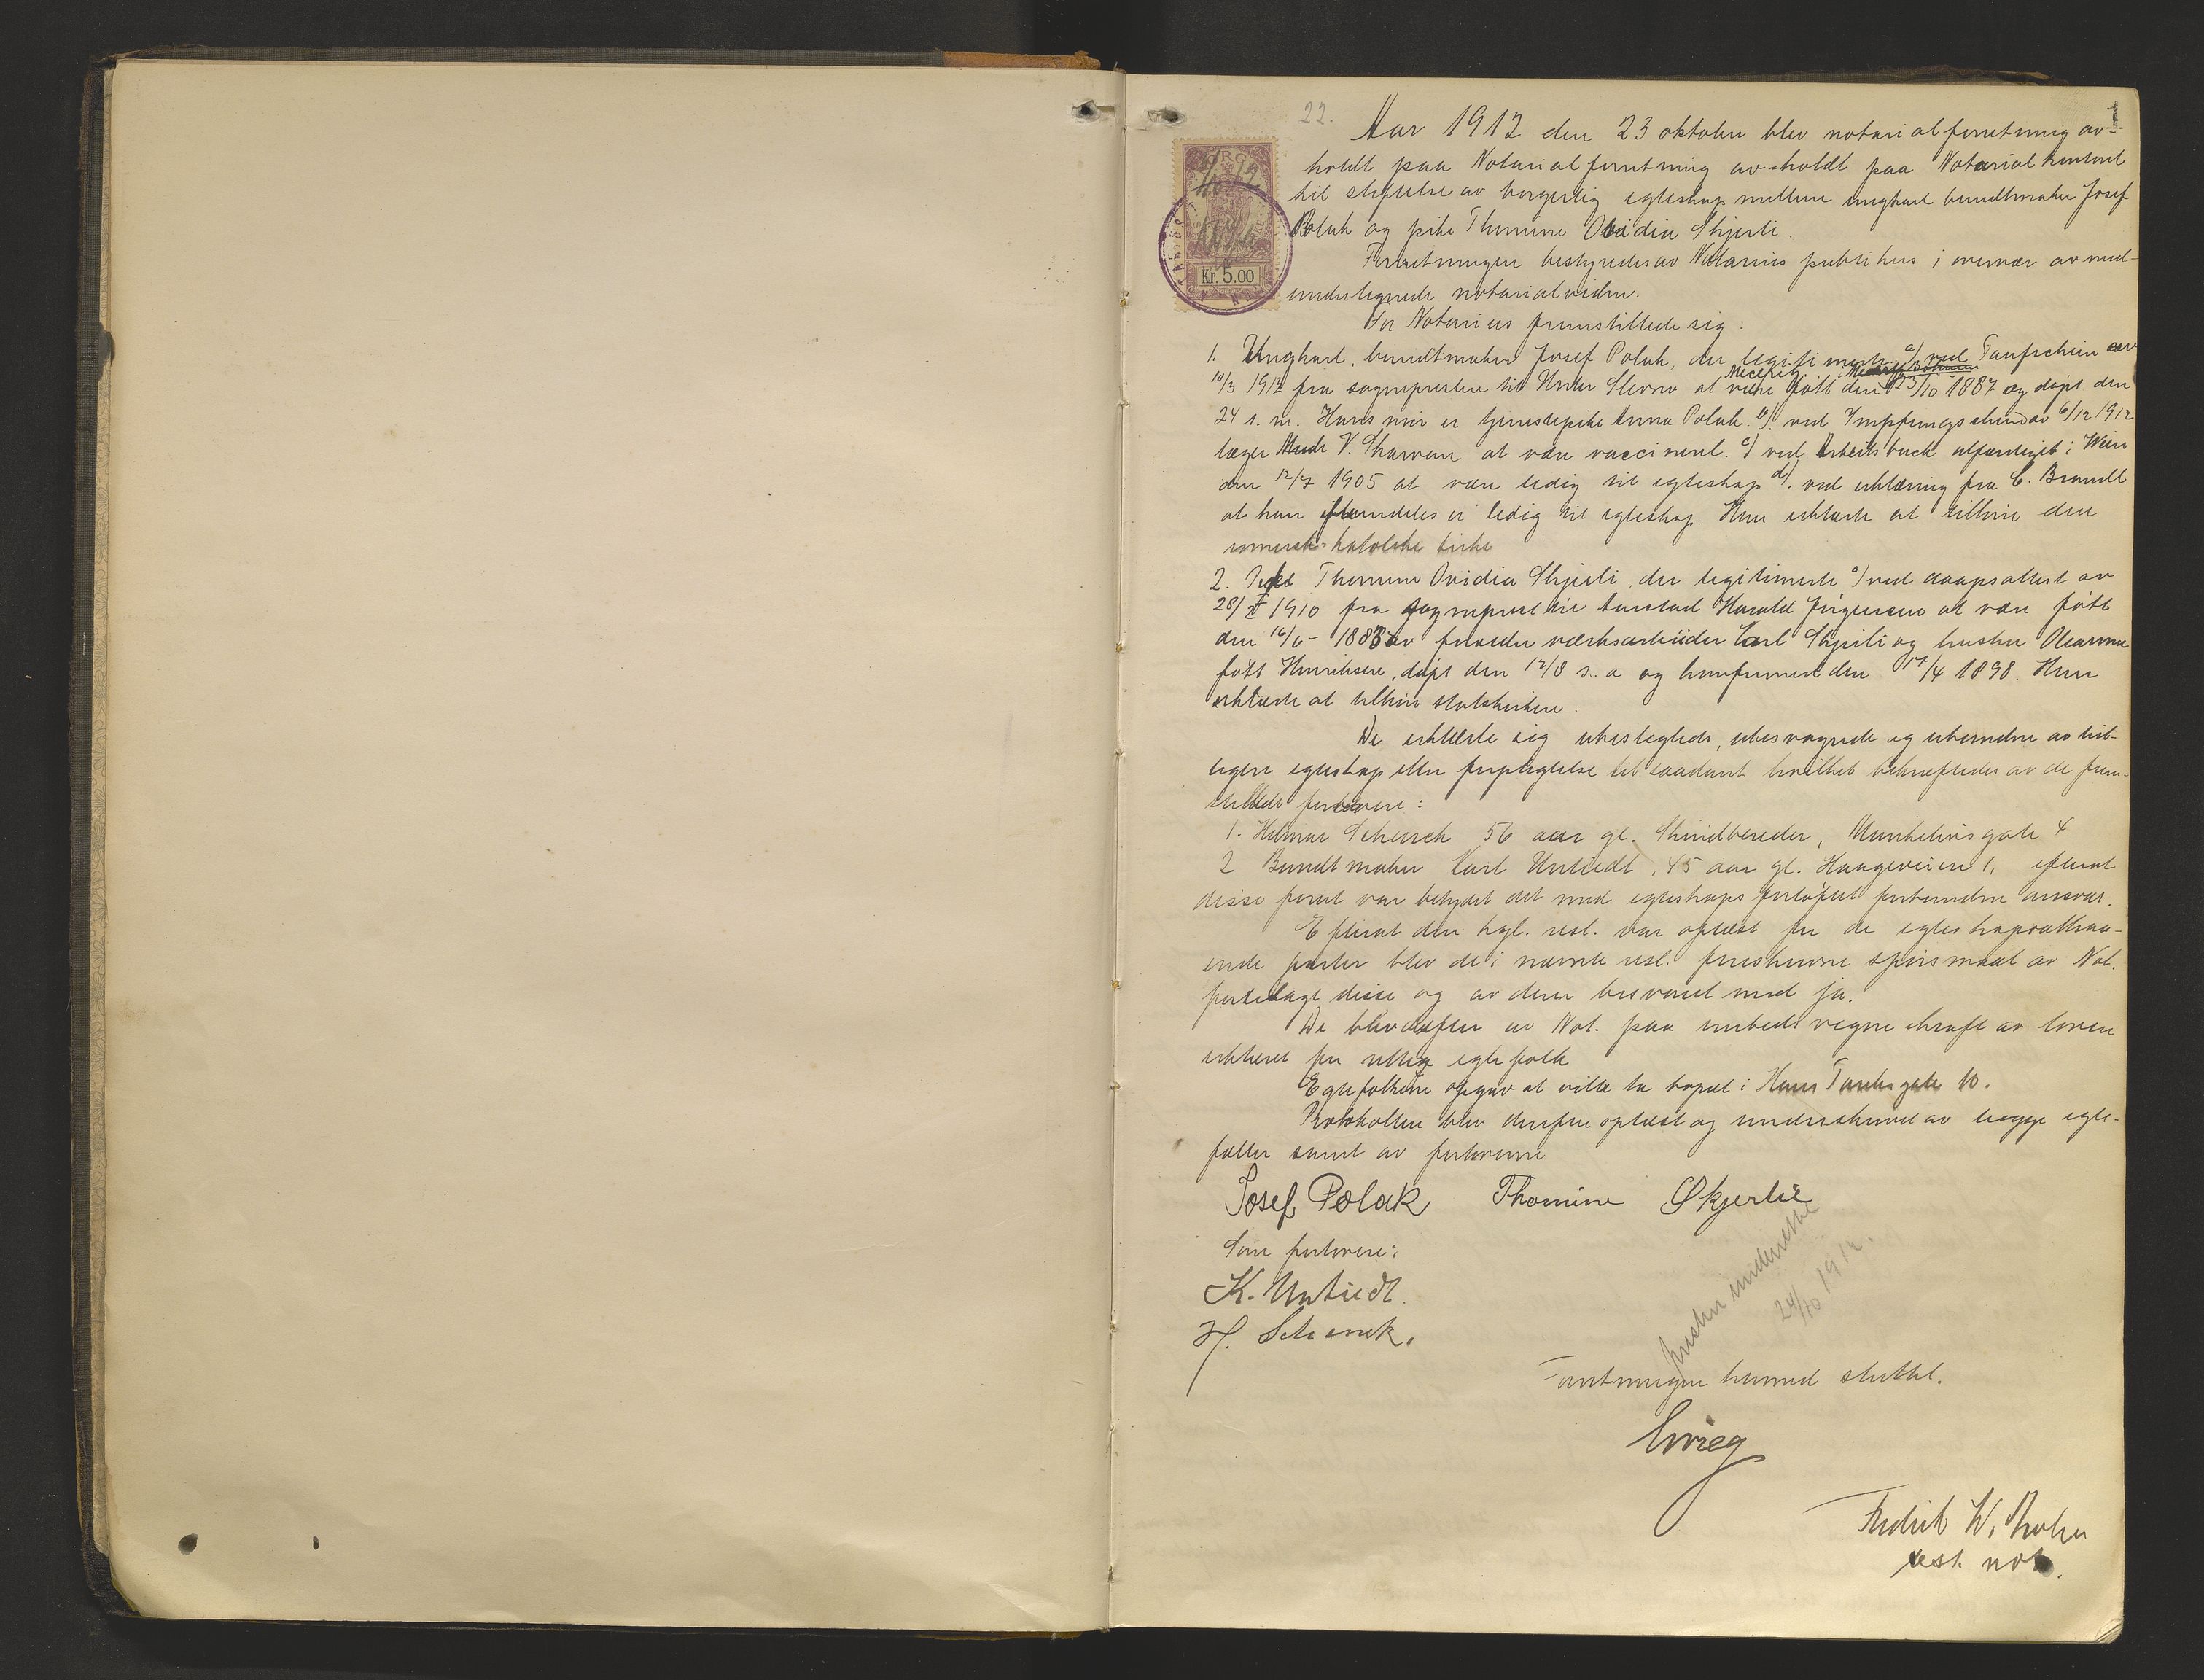 22.
1
Aar 1912 den 23 oktober blev notarialforretning av-
holdt paa Notarialforretning av-holdt paa Notarialkontoret
til stiftelse av borgerlig egteskap mellem ungkarl bundtmaker Josef
Polak og pike Thomine Ovidia Skjerli.
Forretningen bestyredes av Notarius publikus i overvær av med-
undertegnede notarialvidne.
For Notarius fremstillede sig:
1. Ungkarl, bundtmaker Josef Polak, der legitimerte a) ved Taufschein av
10/3 1912 fra sognepresten til Unter at være født den 23/10 1887 og døpt den
24 s. m. Hans mor er tjenestepike Anna Polak. b). ved Impfungsschein av 6/12 1912
læge V. at være vaccineret. c) ved Arbeitsbuch utfærdiget i Wien
den 12/7 1905 at være ledig til egteskap d). ved erklæring fra C. Brandt
at han fremdeles er ledig til egteskap. Han erklærte at tilhøre den
romersk-katolske kirke
2. Pike Thomine Ovidia Skjerli, der legitimerte a) ved daapsattest av
28/X 1910 fra sogneprest til Aarstad Harald Jørgensen at være født
den 16/6 - 1883 av forældre værksarbeider Carl Skjerli og hustru Oleanna
født Henriksen, døpt den 12/8 s. a og konfirmert den 17/4 1898. Hun
erklærte at tilhøre statskirken.
De erklærte sig ubeslegtede, ubesvogrede og ubundne av tid-
ligere egteskap eller forpligtelse til saadant hvilket bekræftedes av de frem-
stillede forlovere:
1. Hilmar Schenck 56 aar gl. Skindbereder, Munkelivsgate 4
2 Bundtmaker Karl Untiedt, 45 aar gl. Haugeveien 1, efterat
disse forut var betydet det med egteskaps forløfte forbundne ansvar.
Efterat den kgl. resl. var oplæst for de egteskapsattraa-
ende parter blev de i nævnte resl. foreskrevne spørsmaal av Not.
forelagt disse og av dem besvaret med ja.
De blev derefter av Not. paa embeds vegne i kraft av loven
erklæret for rette egtefolk
Egtefolkene opgav at ville ta bopæl i Hans Tanksgate 10.
Protokollen blev derefter oplæst og underskrevet av begge egte-
fæller samt av forloverne
Josef Polak Thomine Skjerlie
Som forlovere:
K. Untiedt.
H. Schenck.
presten underrettet
24/10 1912.
Forretningen hermed sluttet.
Grieg
Fredrik W.
est. not.
Kr. 5.00